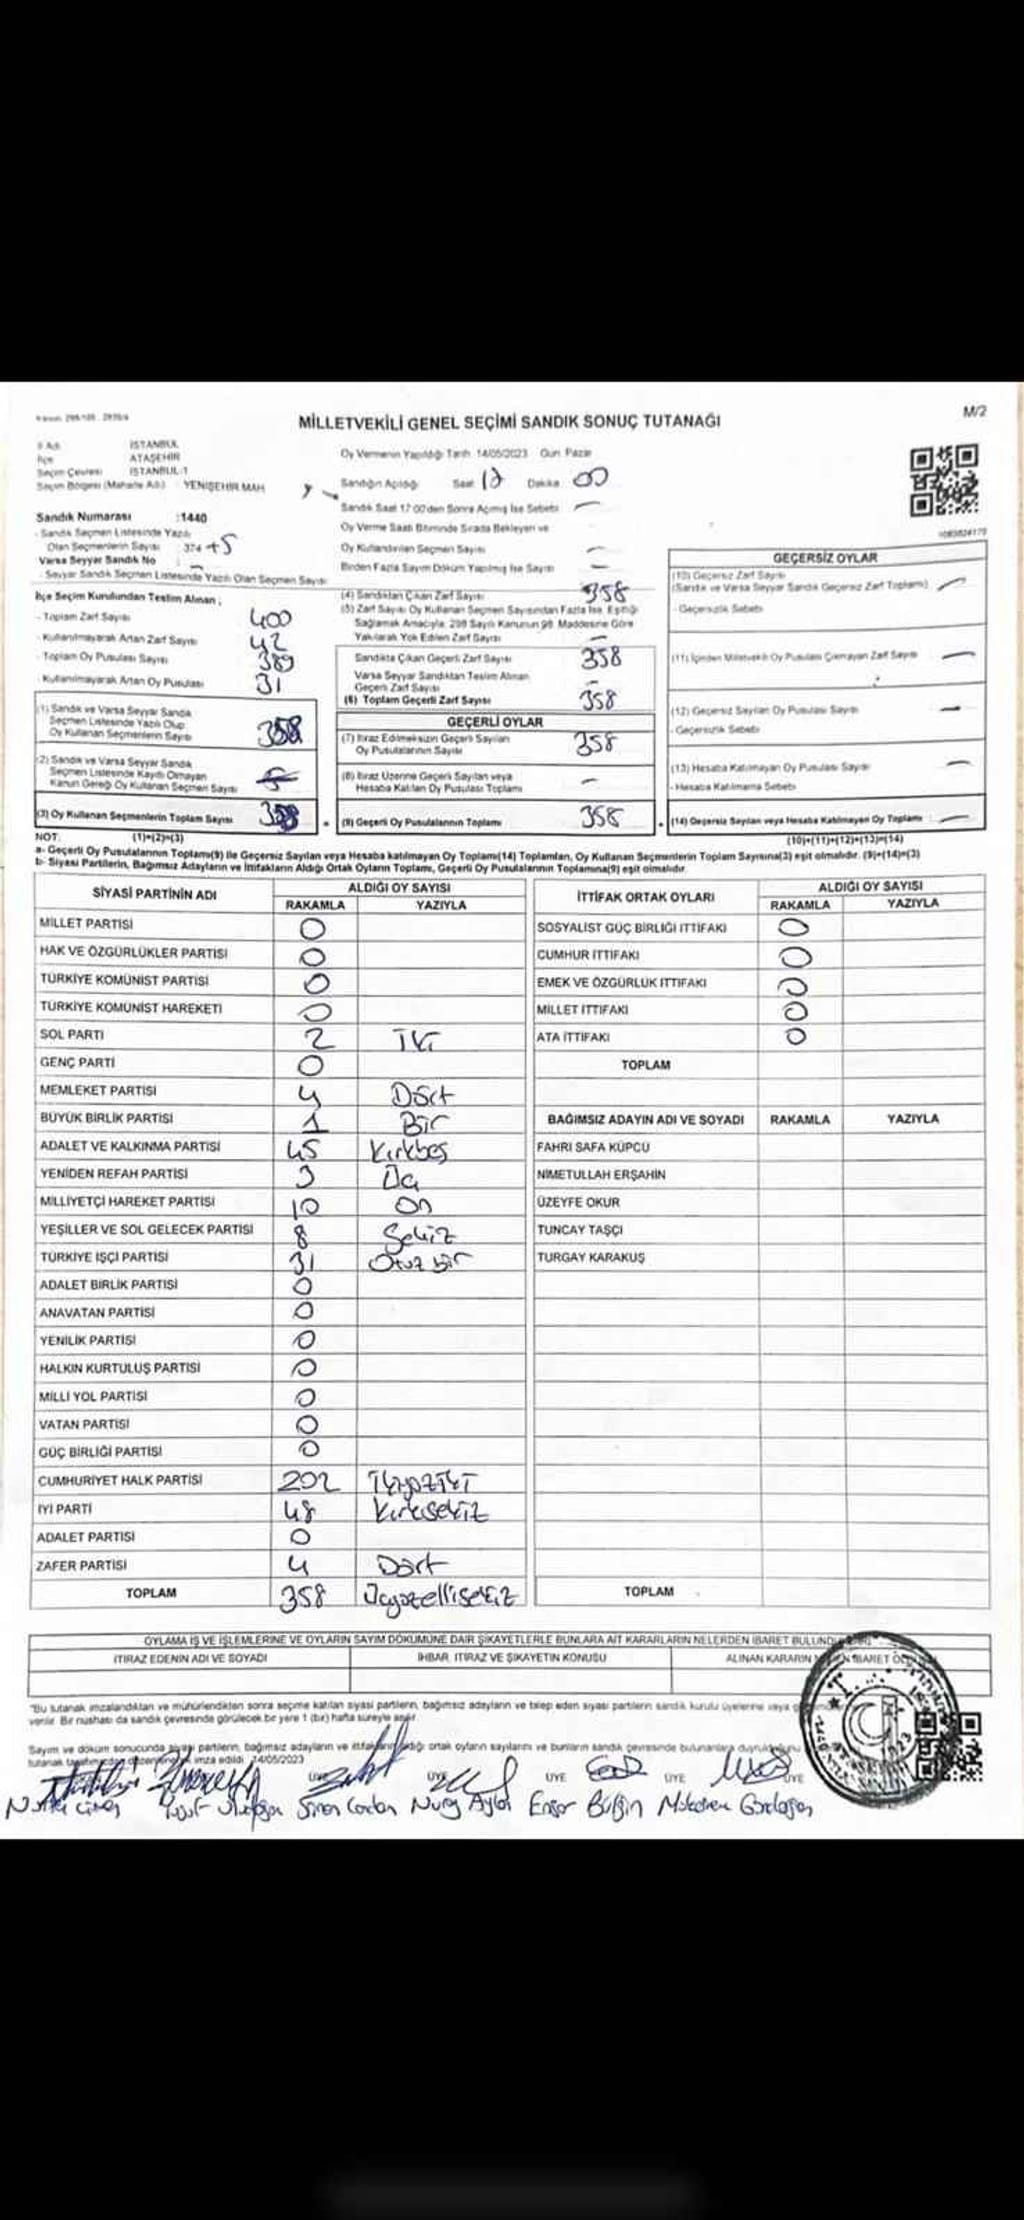 MİLLETVEKİLİ GENEL SEÇİMİ SANDIK SONUÇ TUTANAĞI
M/2
İl Adı İSTANBUL
İlçe ATAŞEHİR
Seçim Çevresi İSTANBUL-1
Seçim Bölgesi (Mahalle Adı) YENİŞEHİR MAH
Oy Vermenin Yapıldığı Tarih 14/05/2023 Gün Pazar
Sandığın Açıldığı Saat 17 Dakika 00
Sandık Saat 17:00'den Sonra Açılmış İse Sebebi —
Oy Verme Saati Bitiminde Sırada Bekleyen ve
Oy Kullandırılan Seçmen Sayısı —
Birden Fazla Sayım Döküm Yapılmış İse Sayısı —
Sandık Numarası :1440
- Sandık Seçmen Listesinde Yazılı
Olan Seçmenlerin Sayısı : 374 +5
Varsa Seyyar Sandık No : —
- Seyyar Sandık Seçmen Listesinde Yazılı Olan Seçmen Sayısı
İlçe Seçim Kurulundan Teslim Alınan ;
- Toplam Zarf Sayısı 400
- Kullanılmayarak Artan Zarf Sayısı 42
- Toplam Oy Pusulası Sayısı 389
- Kullanılmayarak Artan Oy Pusulası 31
(1) Sandık ve Varsa Seyyar Sandık
Seçmen Listesinde Yazılı Olup
Oy Kullanan Seçmenlerin Sayısı 358
(2) Sandık ve Varsa Seyyar Sandık
Seçmen Listesinde Kaydı Olmayan
Kanun Gereği Oy Kullanan Seçmen Sayısı
(3) Oy Kullanan Seçmenlerin Toplam Sayısı 358
(1)+(2)=(3)
(4) Sandıktan Çıkan Zarf Sayısı 358
(5) Zarf Sayısı Oy Kullanan Seçmen Sayısından Fazla İse, Eşitliği
Sağlamak Amacıyla; 298 Sayılı Kanunun 98. Maddesine Göre
Yakılarak Yok Edilen Zarf Sayısı —
Sandıkta Çıkan Geçerli Zarf Sayısı 358
Varsa Seyyar Sandıktan Teslim Alınan
Geçerli Zarf Sayısı —
(6) Toplam Geçerli Zarf Sayısı 358
GEÇERLİ OYLAR
(7) İtiraz Edilmeksizin Geçerli Sayılan
Oy Pusulalarının Sayısı 358
(8) İtiraz Üzerine Geçerli Sayılan veya
Hesaba Katılan Oy Pusulası Toplamı —
(9) Geçerli Oy Pusulalarının Toplamı 358
GEÇERSİZ OYLAR
(10) Geçersiz Zarf Sayısı
(Sandık ve Varsa Seyyar Sandık Geçersiz Zarf Toplamı) —
- Geçersizlik Sebebi
(11) İçinden Milletvekili Oy Pusulası Çıkmayan Zarf Sayısı —
(12) Geçersiz Sayılan Oy Pusulası Sayısı —
- Geçersizlik Sebebi
(13) Hesaba Katılmayan Oy Pusulası Sayısı —
- Hesaba Katılmama Sebebi
(14) Geçersiz Sayılan veya Hesaba Katılmayan Oy Toplamı —
(10)+(11)+(12)+(13)=(14)
NOT:
a- Geçerli Oy Pusulalarının Toplamı(9) ile Geçersiz Sayılan veya Hesaba katılmayan Oy Toplamı(14) Toplamları, Oy Kullanan Seçmenlerin Toplam Sayısına(3) eşit olmalıdır. (9)+(14)=(3)
b- Siyasi Partilerin, Bağımsız Adayların ve İttifakların Aldığı Ortak Oyların Toplamı, Geçerli Oy Pusulalarının Toplamına(9) eşit olmalıdır.
SİYASİ PARTİNİN ADI ALDIĞI OY SAYISI
RAKAMLA YAZIYLA
MİLLET PARTİSİ 0
HAK VE ÖZGÜRLÜKLER PARTİSİ 0
TÜRKİYE KOMÜNİST PARTİSİ 0
TÜRKİYE KOMÜNİST HAREKETİ 0
SOL PARTİ 2 İki
GENÇ PARTİ 0
MEMLEKET PARTİSİ 4 Dört
BÜYÜK BİRLİK PARTİSİ 1 Bir
ADALET VE KALKINMA PARTİSİ 45 Kırkbeş
YENİDEN REFAH PARTİSİ 3 Üç
MİLLİYETÇİ HAREKET PARTİSİ 10 On
YEŞİLLER VE SOL GELECEK PARTİSİ 8 Sekiz
TÜRKİYE İŞÇİ PARTİSİ 31 Otuz bir
ADALET BİRLİK PARTİSİ 0
ANAVATAN PARTİSİ 0
YENİLİK PARTİSİ 0
HALKIN KURTULUŞ PARTİSİ 0
MİLLİ YOL PARTİSİ 0
VATAN PARTİSİ 0
GÜÇ BİRLİĞİ PARTİSİ 0
CUMHURİYET HALK PARTİSİ 202 İkiyüziki
İYİ PARTİ 48 Kırksekiz
ADALET PARTİSİ 0
ZAFER PARTİSİ 4 Dört
TOPLAM 358 Üçyüzellisekiz
İTTİFAK ORTAK OYLARI ALDIĞI OY SAYISI
RAKAMLA YAZIYLA
SOSYALİST GÜÇ BİRLİĞİ İTTİFAKI 0
CUMHUR İTTİFAKI 0
EMEK VE ÖZGÜRLÜK İTTİFAKI 0
MİLLET İTTİFAKI 0
ATA İTTİFAKI 0
TOPLAM
BAĞIMSIZ ADAYIN ADI VE SOYADI RAKAMLA YAZIYLA
FAHRİ SAFA KÜPCÜ
NİMETULLAH ERŞAHİN
ÜZEYFE OKUR
TUNCAY TAŞÇI
TURGAY KARAKUŞ
TOPLAM
OYLAMA İŞ VE İŞLEMLERİNE VE OYLARIN SAYIM DÖKÜMÜNE DAİR ŞİKAYETLERLE BUNLARA AİT KARARLARIN NELERDEN İBARET BULUNDU
İTİRAZ EDENİN ADI VE SOYADI İHBAR, İTİRAZ VE ŞİKAYETİN KONUSU ALINAN KARARIN
"Bu tutanak imzalandıktan ve mühürlendikten sonra seçime katılan siyasi partilerin, bağımsız adayların ve talep eden siyasi partilerin sandık kurulu üyelerine veya
verilir. Bir nüshası da sandık çevresinde görülecek bir yere 1 (bir) hafta süreyle asılır.
Sayım ve döküm sonucunda siyasi partilerin, bağımsız adayların ve ittifakların aldığı ortak oyların sayılarını ve bunların sandık çevresinde bulunanlara duyrulduğunu
tutanak imza edildi. 14/05/2023
ÜYE ÜYE ÜYE ÜYE ÜYE